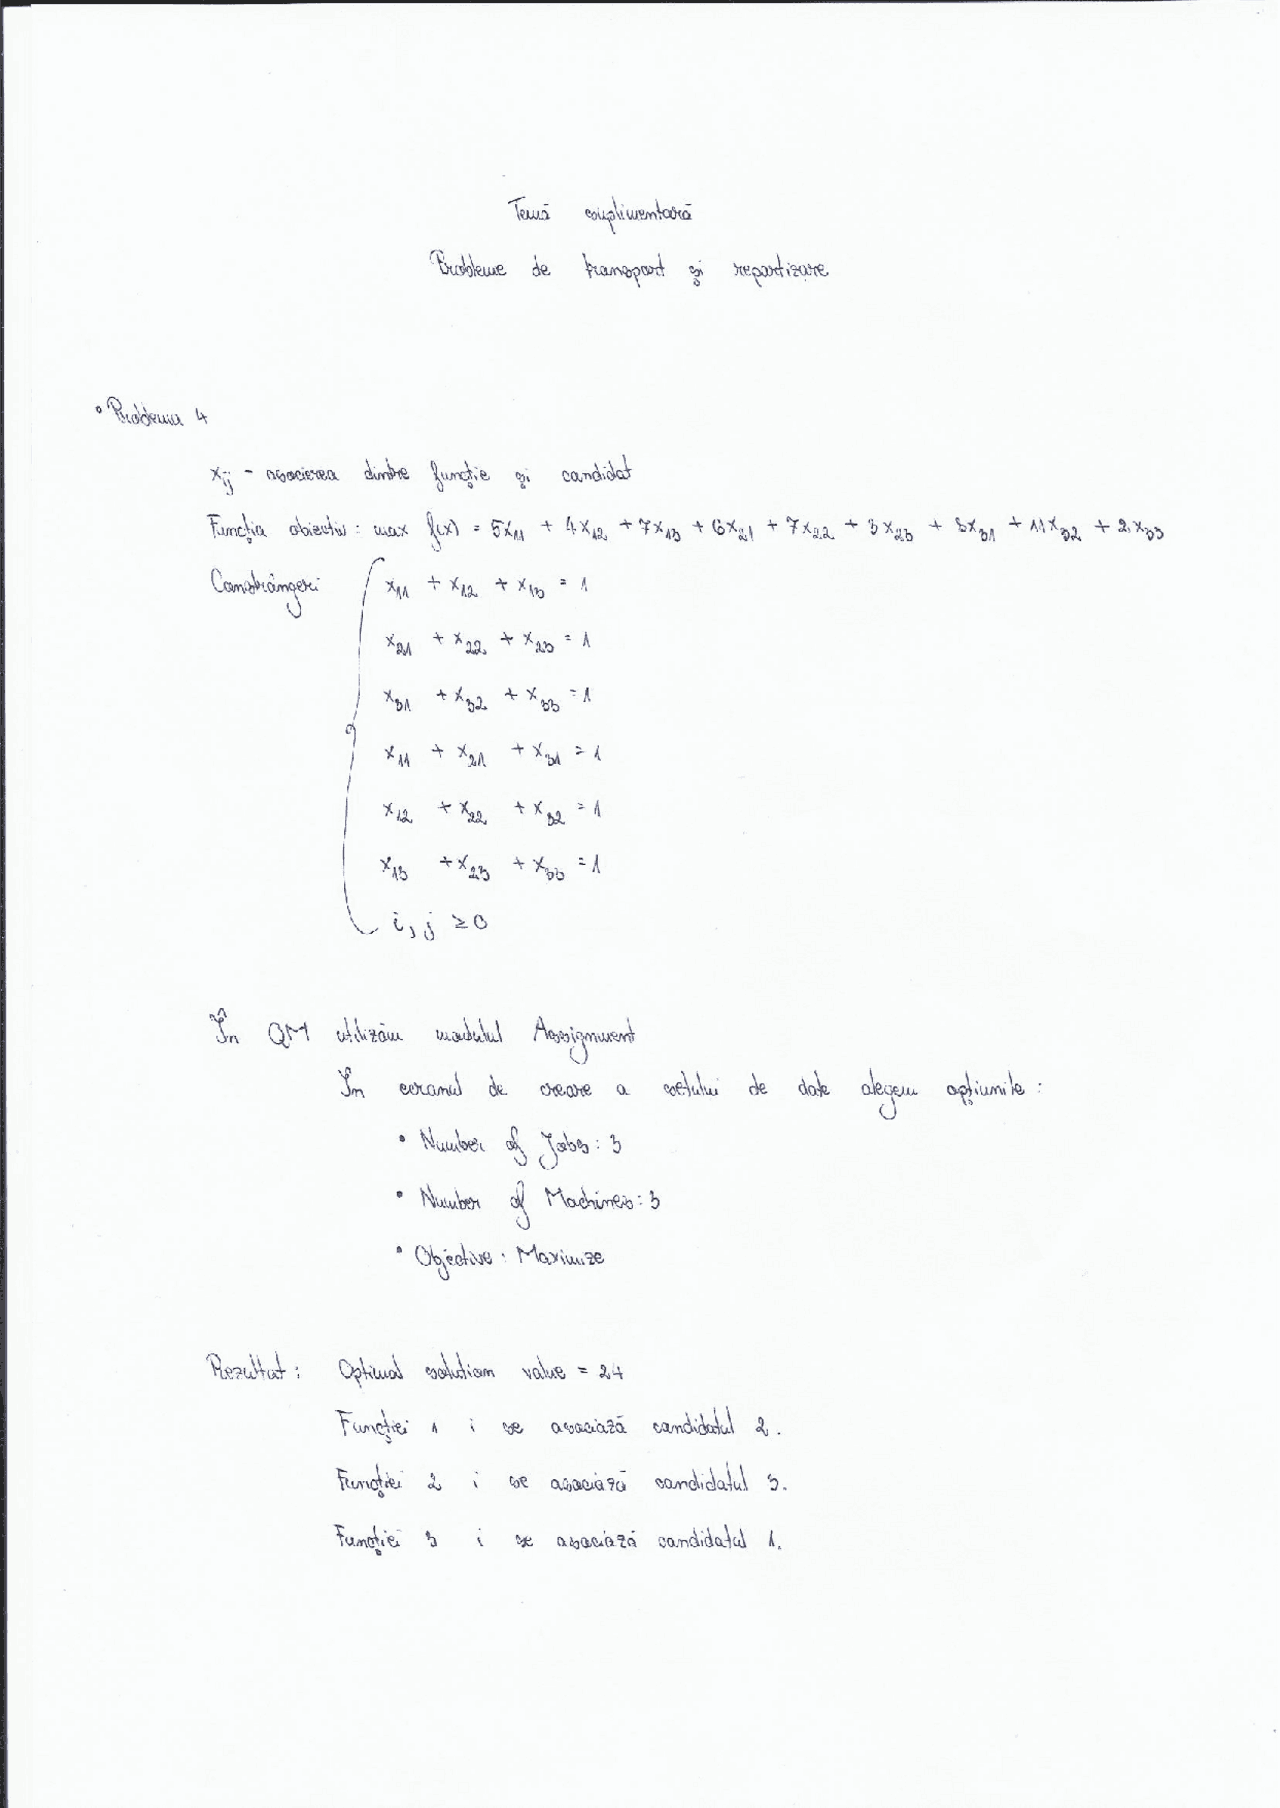 Temă suplimentară
Probleme de transport și repartizare
• Problema 4
xij - asocierea dintre funcție și candidat
Funcția obiectiv: max f(x) = 5x11 + 4x12 + 7x13 + 6x21 + 7x22 + 3x23 + 8x31 + 11x32 + 2x33
Constrângeri
x11 + x12 + x13 = 1
x21 + x22 + x23 = 1
x31 + x32 + x33 = 1
x11 + x21 + x31 = 1
x12 + x22 + x32 = 1
x13 + x23 + x33 = 1
i, j ≥ 0
În QM utilizăm modulul Assignment
În ecranul de creare a setului de date alegem opțiunile:
• Number of Jobs: 3
• Number of Machines: 3
• Objective: Maximize
Rezultat: Optimal solution value = 24
Funcției 1 i se asociază candidatul 2.
Funcției 2 i se asociază candidatul 3.
Funcției 3 i se asociază candidatul 1.